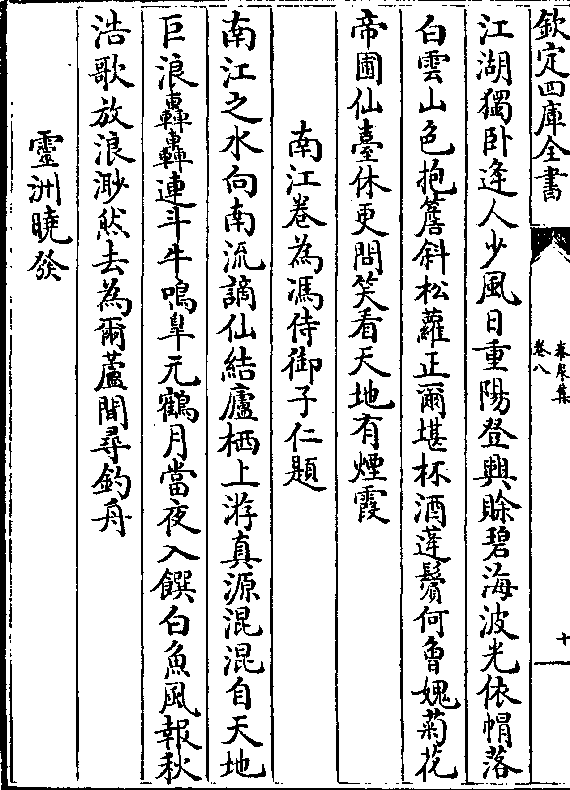 欽定四庫全書
泰泉集
卷八
十
江湖獨卧逢人少風日重陽登興賒碧海波光依帽落
白雲山色抱簷斜松蘿正爾堪杯酒蓬鬢何曾媿菊花
帝圃仙臺休更問笑看天地有煙霞
南江卷為馮侍御子仁題
南江之水向南流謫仙結廬栖上游真源混混自天地
巨浪轟轟連斗牛鳴臯元鶴月當夜入饌白魚風報秋
浩歌放浪渺然去為爾蘆間尋釣舟
靈洲曉發